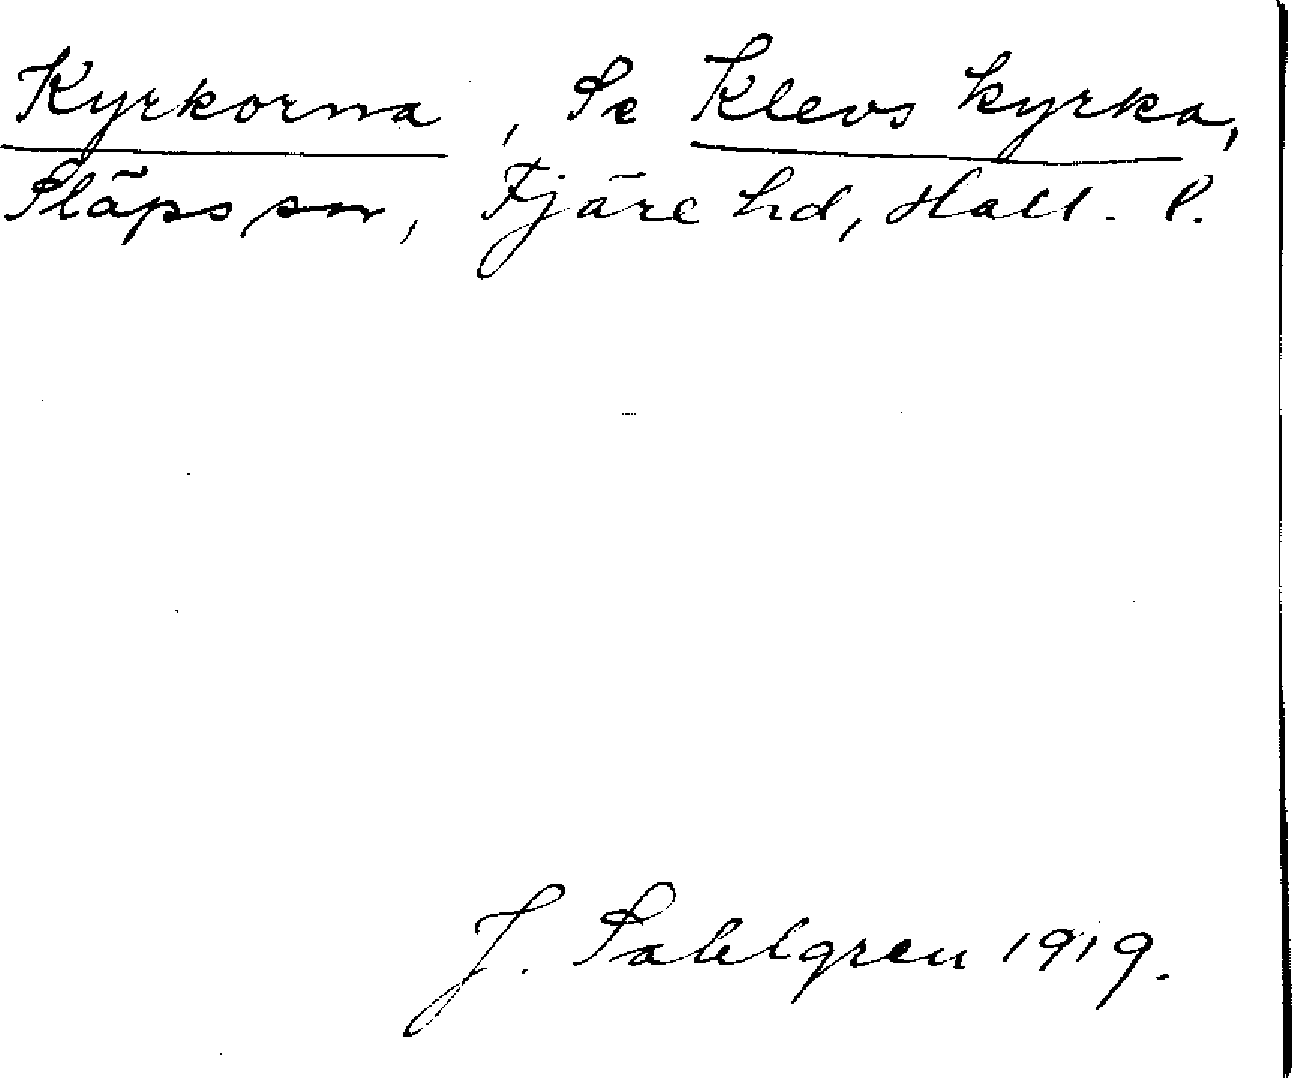 Kyrkorna, Se Klevs kyrka,
Släps sn, Fjäre hd, Hall. l.
J. Sahlgren 1919.